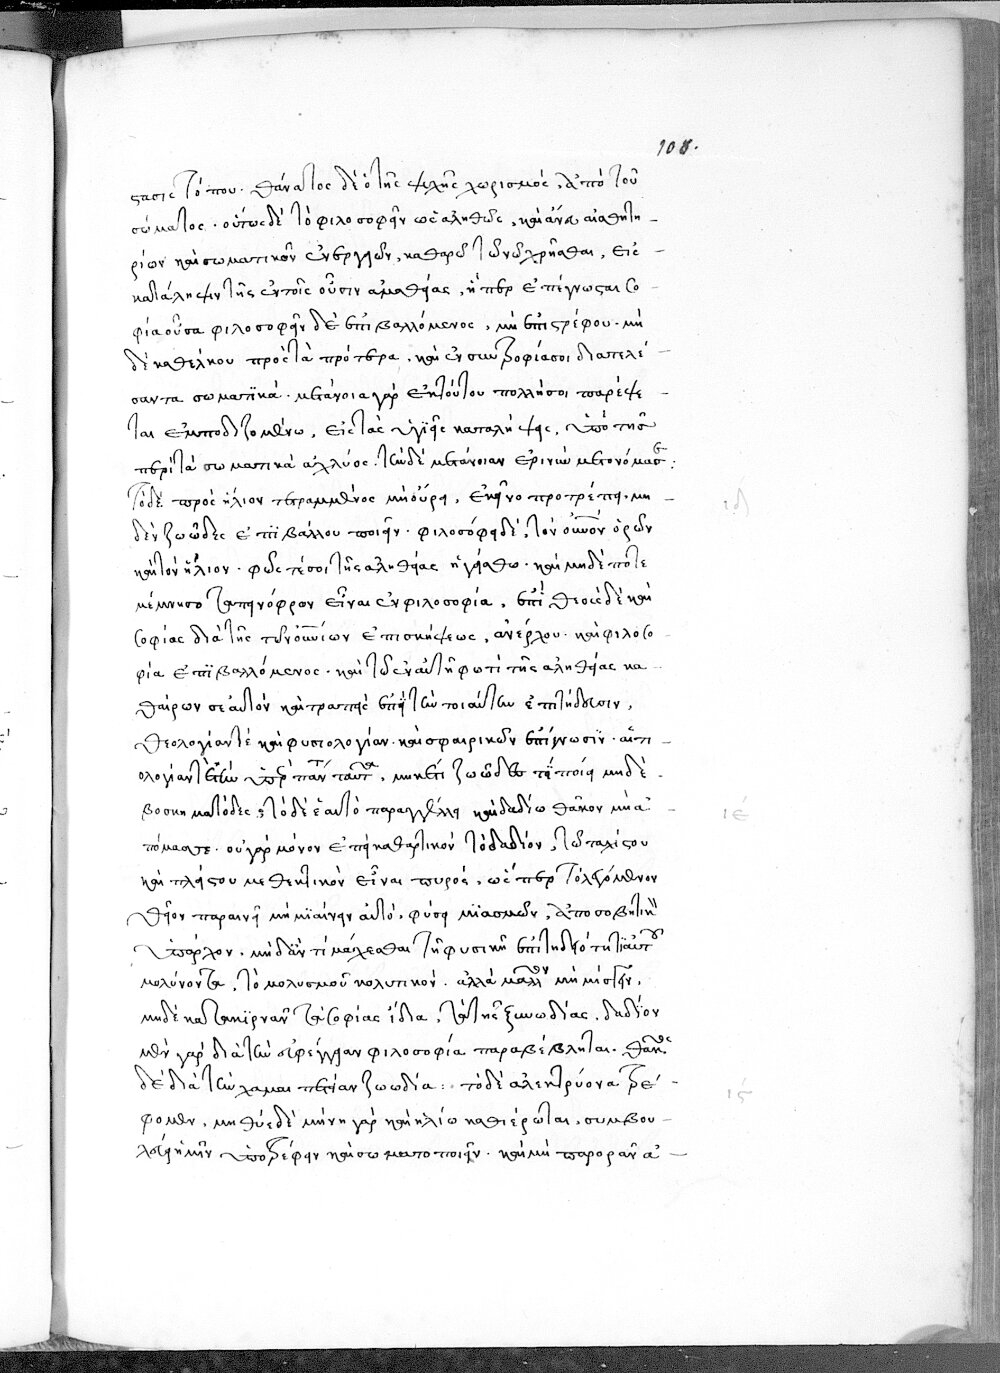 108.
στασις τόπου. θάνατος δὲ ὁ τῆς ψυχῆς χωρισμὸς, ἀπὸ τοῦ
σώματος. οὕτως δὲ τὸ φιλοσοφεῖν ὡς ἀληθῶς, καὶ ἄνευ αἰσθητη-
ρίων καὶ σωματικῶν ἐνεργειῶν, καθαρῷ τῷ νῷ χρῆσθαι, εἰς
κατάληψιν τῆς ἐν τοῖς οὖσιν ἀληθείας, ἥπερ ἐπέγνωσται σο-
φία οὖσα φιλοσοφεῖν δὲ ἐπιβαλλόμενος, μὴ ἐπιστρέφου. μὴ
δὲ καθέλκου πρὸς τὰ πρότερα, καὶ ἐν συντροφίᾳ σοι διατελέ-
σαντα σωματικά. μετάνοια γὰρ ἐκ τούτου πολλή σοι παρέψε-
ται ἐμποδιζομένῳ, εἰς τὰς ὑγιεῖς καταλήψεις, ὑπὸ τῆς
περὶ τὰ σωματικὰ ἀχλύος. τὴν δὲ μετάνοιαν ἐρινὺν μετονόμασε:
Τὸ δὲ πρὸς ἥλιον τετραμμένος μὴ οὔρει, ἐκεῖνο προτρέπει. μη-
δὲν ζωῶδες ἐπιβάλλου ποιεῖν. φιλοσόφει δὲ, τὸν οὐνὸν ὁρῶν
καὶ τὸν ἥλιον. φῶς τέ σοι τῆς ἀληθείας ἡγείσθω. καὶ μηδέποτε
μέμνησο ταπεινόφρον εἶναι ἐν φιλοσοφίᾳ, ἐπὶ θεοὺς δὲ καὶ
σοφίας διὰ τῆς τῶν οὐνίων ἐπισκήψεως, ἀνέρχου. καὶ φιλοσο-
φίᾳ ἐπιβαλλόμενος. καὶ τῷ ἐν αὐτῇ φωτὶ τῆς ἀληθείας κα-
θαίρων σεαυτὸν καὶ τραπεὶς ἐπὶ τὴν τοιαύτην ἐπιτήδευσιν,
θεολογίαν τὲ καὶ φυσιολογίαν. καὶ σφαιρικῶν ἐπίγνωσιν. αἰτι-
ολογίαν τὲ τὴν ὑπὲρ πάντα ταῦτα, μηκέτι ζωῶδες τι ποίει μηδὲ
βοσκηματῶδες, τὸ δὲ ἑαυτὸ παραγγέλλει καὶ δαδίῳ θᾶκον μὴ ἀ-
πόμασσε. οὐ γὰρ μόνον ἐπεὶ καθαρτικὸν τὸ δαδίον, τῷ ταχίστου
καὶ πλείστου μεθεκτικὸν εἶναι πυρὸς, ὥσπερ τὸ λεγόμενον
θεῖον παραινεῖ μὴ μιαίνειν αὐτό. φύσει μιασμῶν, ἀποσοβητικὴ
ὑπάρχον. μηδ' ἂν τί μάχεσθαι τῇ φυσικῇ ἐπιτηδειότητι αὐτοῦ
μολύνοντα, τὸ μολυσμοῦ κολυτικόν. ἀλλὰ μᾶλλον μὴ μίσγειν,
μηδὲ κατακιρνᾶν τὰ σοφίας ἴδια, τὰ τῆς ζωωδίας. δαδίον
μὲν γὰρ διὰ τὴν εὐφέγγειαν φιλοσοφίᾳ παραβέβληται. θᾶκος
δὲ διὰ τὴν χαμαιπετείαν ζωωδία: τὸ δὲ ἀλεκτρύονα τρέ-
φομεν, μὴ θύε δὲ μήνη γὰρ καὶ ἡλίῳ καθιέρωται, συμβου-
λεύει ἡμῖν ὑποτρέφειν καὶ σωματοποιεῖν. καὶ μὴ παρορᾶν ἀ-
ιδ
ιέ
ις